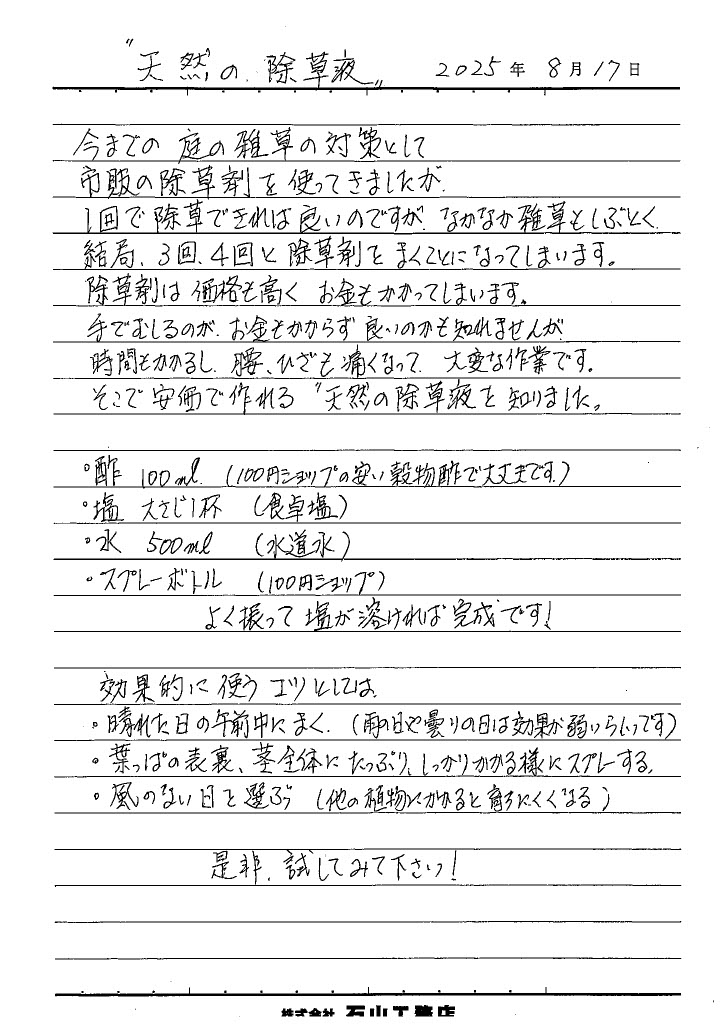 〝天然の除草液〟 2025年 8月17日
今までの 庭の雑草の対策として
市販の除草剤を使ってきましたが、
1回で除草できれば良いのですが、なかなか雑草もしぶとく、
結局、3回、4回と除草剤をまくことになってしまいます。
除草剤は価格も高く お金もかかってしまいます。
手でむしるのが、お金もかからず良いのかも知れませんが
時間もかかるし、腰、ひざも痛くなって、大変な作業です。
そこで安価で作れる〝天然の除草液を知りました。
・酢 100ml (100円ショップの安い穀物酢で大丈夫です)
・塩 大さじ1杯 (食卓塩)
・水 500ml (水道水)
・スプレーボトル (100円ショップ)
よく振って塩が溶ければ完成です!
効果的に使うコツとしては、
・晴れた日の午前中にまく、(雨の日や曇りの日は効果が弱いらしいです)
・葉っぱの表裏、茎全体にたっぷり、しっかりかかる様にスプレーする。
・風のない日を選ぶ (他の植物にかかると育ちにくくなる)
是非、試してみて下さい!
株式会社 石山工務店